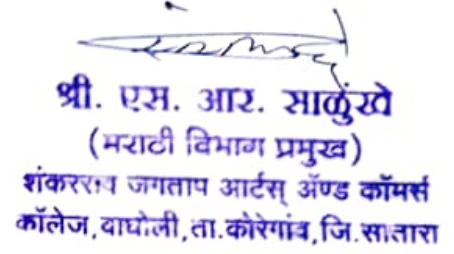 श्री. एस. आर. साळुंखे
(मराठी विभाग प्रमुख)
शंकरराव जगताप आर्टस् ॲण्ड कॉमर्स
कॉलेज,वाघोली,ता.कोरेगांव,जि.सातारा